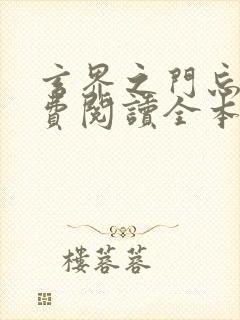 玄界之門忘
費閱讀全本
樓蓉蓉